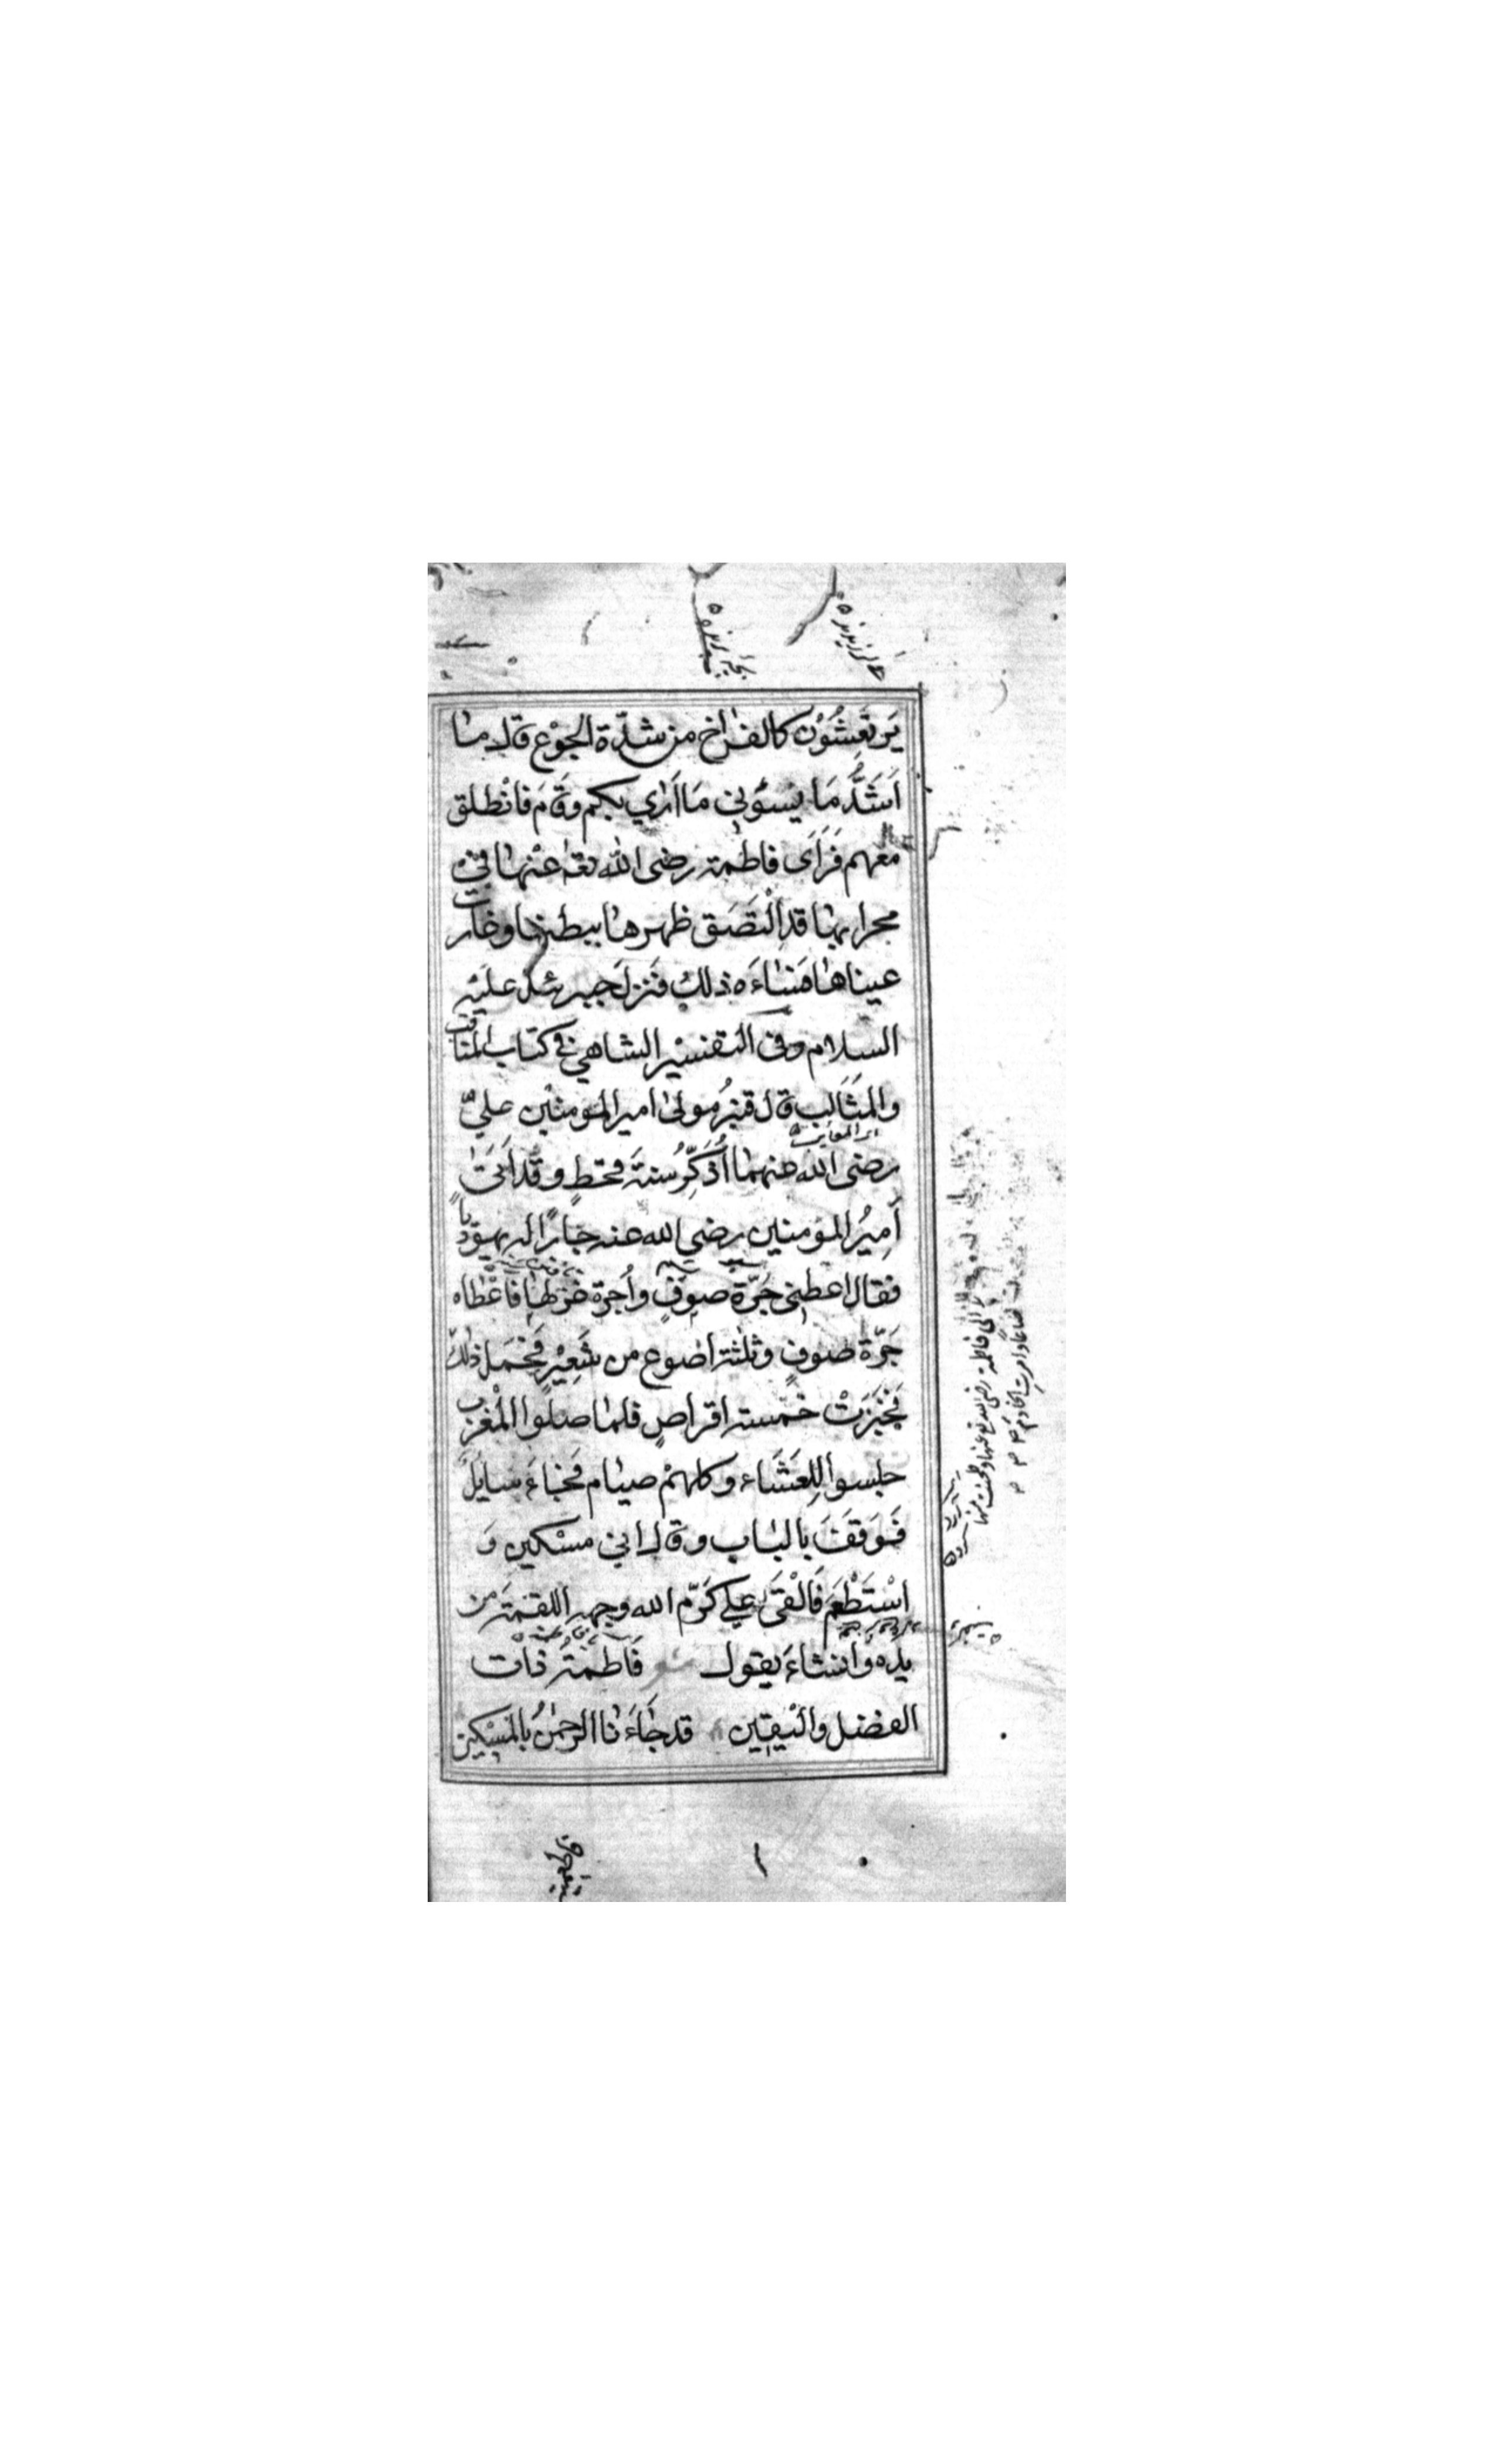 يَرتَعِشُوْنَ كالفراخ من شدّة الجوْع قال ما
اَشَدُّ مَا يسؤني مَا اَرٰي بكم وقَامَ فانْطلق
معهم فَرَاَى فاطمة رضى الله تعٰ عنْها في
محرابها قدِ الْتَصَق ظهرها ببطنها وغارت
عيناها فَسَاءَه ذلك فَنَزل جبرئيل عليه
السلام وفى التفسير الشاهي في كتاب المناقب
والمثَالب قال قنبرُ مولىٰ امير المؤمنين عليّ
رضى الله عنهما اُذَكِّرُ سنةَ قحطٍ وقد اَتىٰ
أَمِيرُ المؤمنين رضي الله عنه جارًا له يهوديًا
فقال اعطِني جَزّة صوفٍ واُجرة غزلها فاعْطاه
جَزّة صوفٍ وثلثة اصْوع من شَعِيْرٍ فَحَمَل ذلك
فَخبَزَتْ خمسة اقراصٍ فلما صلوا المغرب
جلسوا لِلعَشَاء وكلهمْ صيام فَجَاءَ سايِلٌ
فَوَقَفَ بالباب وقال اني مسْكين وَ
اسْتَطْعَمَ فَالْقَىٰ علي كَرّم الله وجهه اللقمَةَ من
يدِه وَانشاءَ يقول فَاطمَةُ ذات
الفضل والْيقين قد جَاءَنا الرحمٰنُ بالمسْكين